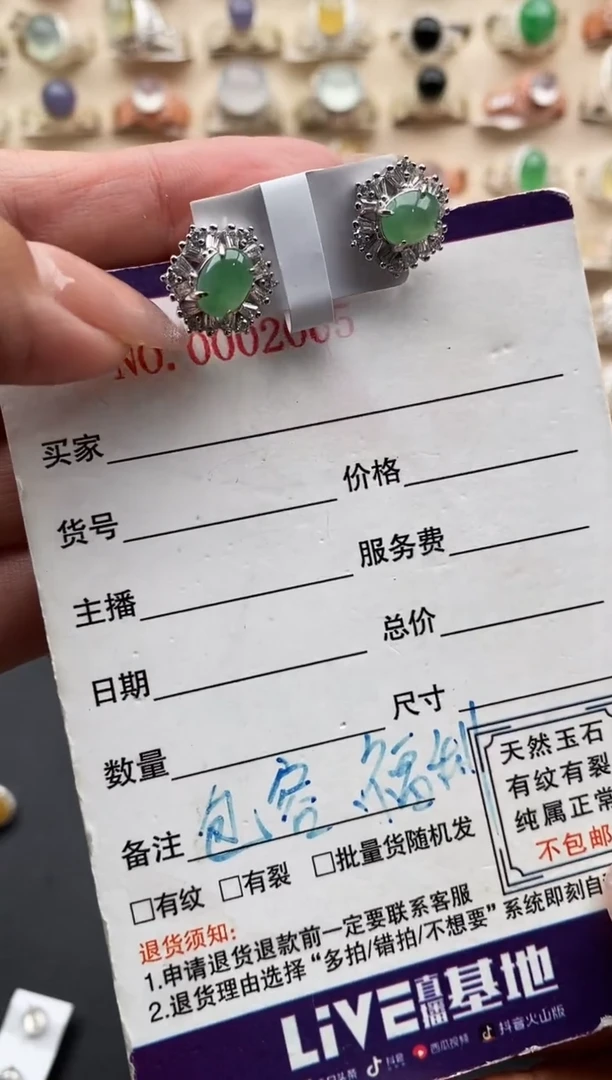 NO. 0002065
买家
价格
货号
服务费
主播
总价
日期
尺寸
数量
天然玉石
有纹有裂
纯属正常
不包邮
包容 福利
备注
□有纹 □有裂 □批量货随机发
退货须知:
1.申请退货退款前一定要联系客服
2.退货理由选择“多拍/错拍/不想要”系统即刻自
LiVE直播基地
抖音 西瓜视频 抖音火山版